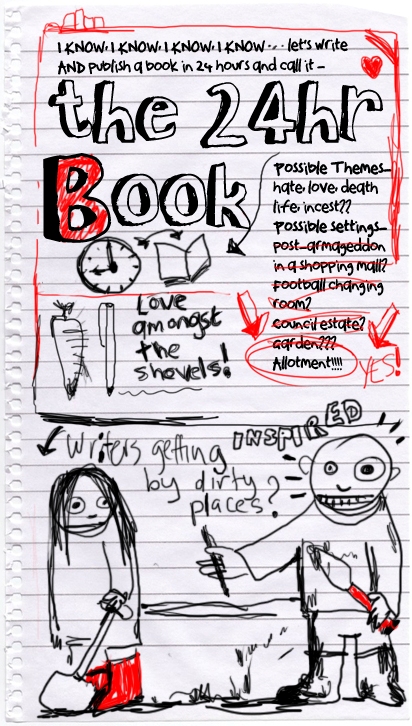 I KNOW, I KNOW, I KNOW, I KNOW... let's write
AND publish a book in 24 hours and call it -
the 24hr
Book
possible Themes-
hate, love, death
life, incest??
possible settings-
post-armageddon
in a shopping mall?
football changing
room?
council estate?
garden???
Allotment!!!!
YES!
Love
amongst
the
shovels!
Writers getting INSPIRED
by dirty
places?